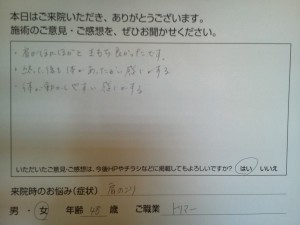 本日はご来院いただき、ありがとうございます。
施術のご意見・ご感想を、ぜひお聞かせください。
・肩がぽかぽかと きもち良かったです。
・終った後も体があったかい感じがする
・体が動かしやすい感じがする
いただいたご意見・ご感想は、今後HPやチラシなどに掲載してもよろしいですか? はい / いいえ
来院時のお悩み(症状) 肩のこり
男・女 年齢 48 歳 ご職業 トリマー